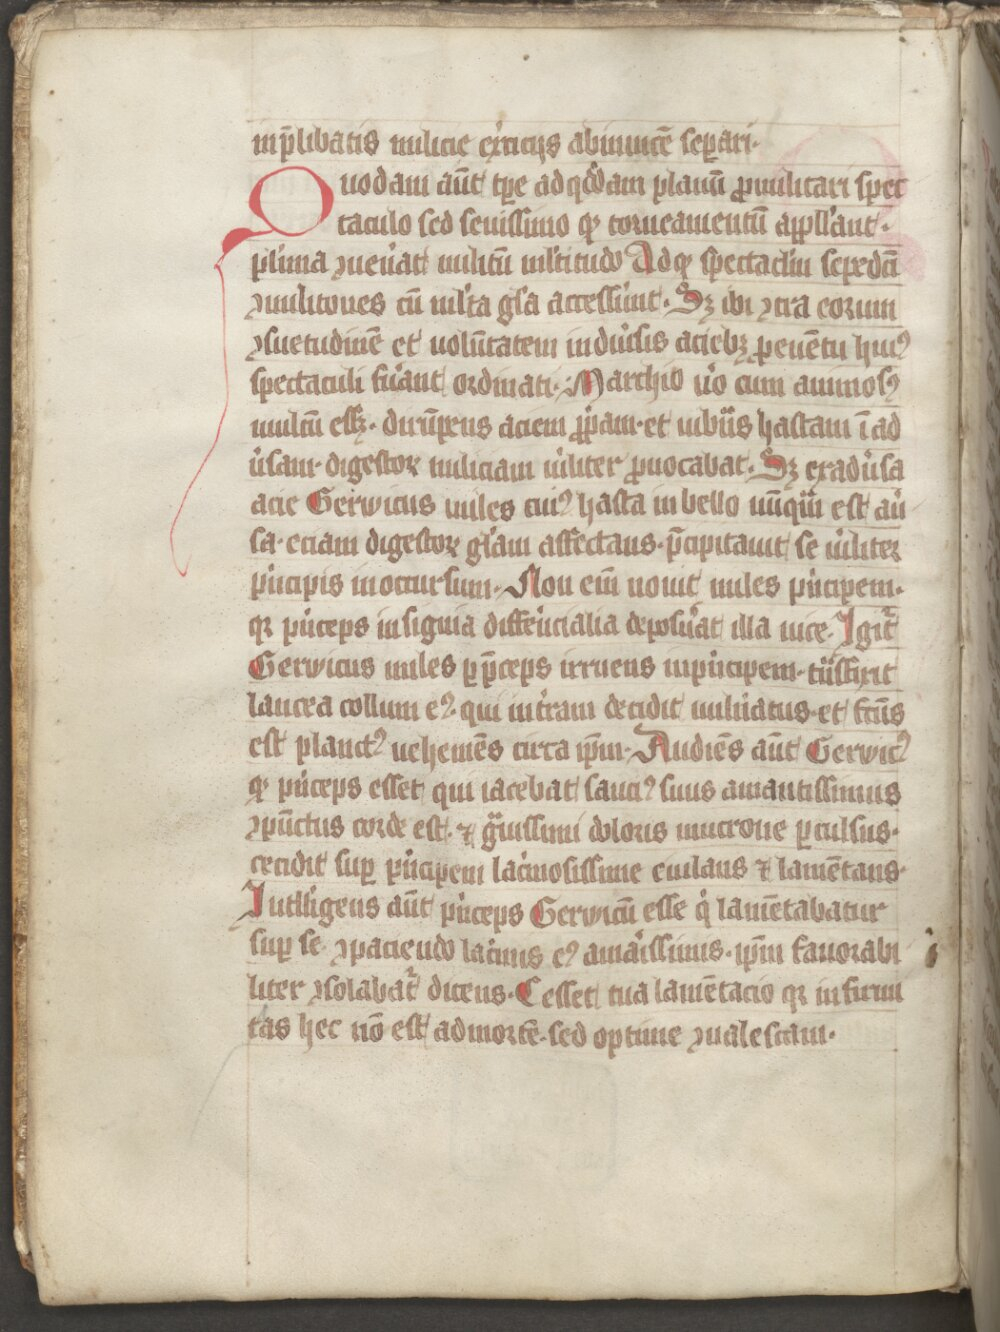 in p̄libatis milicie ex̓ticijs abinuicē sep̲ari·
Quodam aūt tp̄e ad q̄ddam planū ꝓmilitari spec
taculo sed seuissimo qꝫ torneamentū app̲ll̓ant·
pl̓ima ꝯuen̓at militū ml̓titudo Ad qꝫ spectac̓lm sep̲edc̄i
ꝯmilitones cū ml̓ta gl̓a accessūnt· Sꝫ ibi ꝯtra eorum
ꝯsuetudinē et uolūtatem in diu̓sis aciebꝫ ꝓ euētu huiꝰ
spectaculi fu̓ant ordinati· Marchio u̓o cum animosꝰ
multū essꝫ· dirūpens aciem ꝓp̓am· et uibn̓s hastam ī ad
u̓sam· digestoꝝ miliciam uil̓iter ꝓuocabat· Sꝫ ex adu̓sa
acie Gerwicus miles cuiꝰ hasta in bello nūqm̄ est au̓
sa· eciam digestoꝝ gl̓am affectans· p̄cipitauit se uil̓iter
p̓ncipis in occursum· Non em̄ nouit miles p̓ncipem·
qꝫ p̓nceps insignia diffen̓cialia deposu̓at illa uice· Igit̓
Gerwicus miles p̲p̄ceps irruens in p̓ncipem· tn̓sfixit
lancea collum eiꝰ qui in t̓ram decidit uuln̓atus· et fc̄us
est planctꝰ uehemēs circa ip̄m· Audiēs aūt Gerwicꝰ
qꝫ p̓nceps esset qui iacebat sauciꝰ suus amantissimus
ꝯpūctus corde est· ⁊ gͣuissimi doloris mucrone p̲culsus·
cecidit sup̲ p̓ncipem lac̓mosissime eiulans ⁊ lamētans·
Intell̓igens aūt p̓nceps Gerwicū esse qͥ lamētabatur
sup̲ se· ꝯpaciendo lac̓mis eiꝰ amar̓issimis· ip̄m fauorabi
liter ꝯsolabat̓ dicens· Cesset tua lamētacio qꝫ infirmi
tas hec nō est ad mortē· sed optime ꝯualescam·